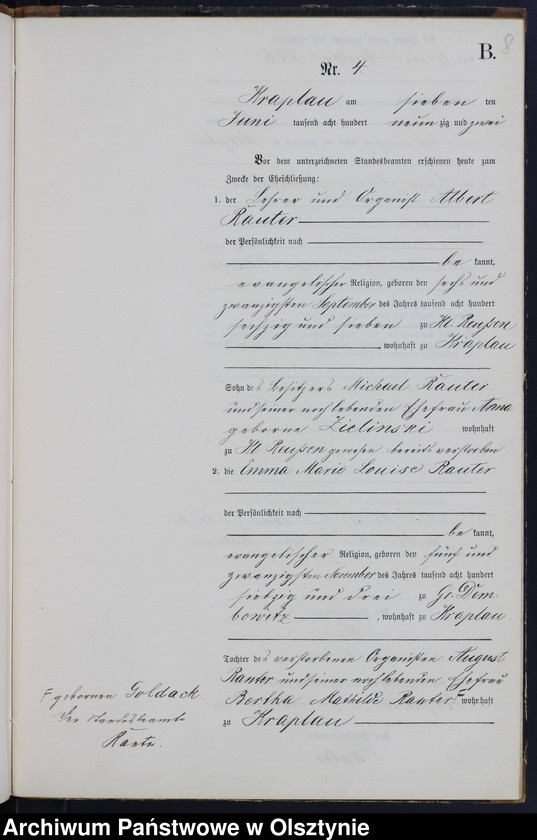 B. 8
Nr. 4
Kraplau am sieben ten
Juni tausend acht hundert neun zig und zwei
Vor dem unterzeichneten Standesbeamten erschienen heute zum
Zwecke der Eheschließung:
1. der Lehrer und Organist Albert
Rauter
der Persönlichkeit nach
be kannt,
evangelischer Religion, geboren den sechs und
zwanzigsten September des Jahres tausend acht hundert
sechzig und sieben zu Kl. Reußen
, wohnhaft zu Kraplau
Sohn des Besitzers Michael Rauter
und seiner noch lebenden Ehefrau Anna
geborne Zielinski wohnhaft
zu Kl. Reußen gewesen bereits verstorben
2. die Emma Marie Louise Rauter
der Persönlichkeit nach
be kannt,
evangelischer Religion, geboren den fünf und
zwanzigsten November des Jahres tausend acht hundert
siebzig und drei zu Gr. Dem-
bowitz , wohnhaft zu Kraplau
Tochter des verstorbenen Organisten August
Rauter und seiner noch lebenden Ehefrau
Bertha Mathilde Rauter F wohnhaft
zu Kraplau
F gebornen Goldack
Der Standesbeamte
Archiwum Państwowe w Olsztynie